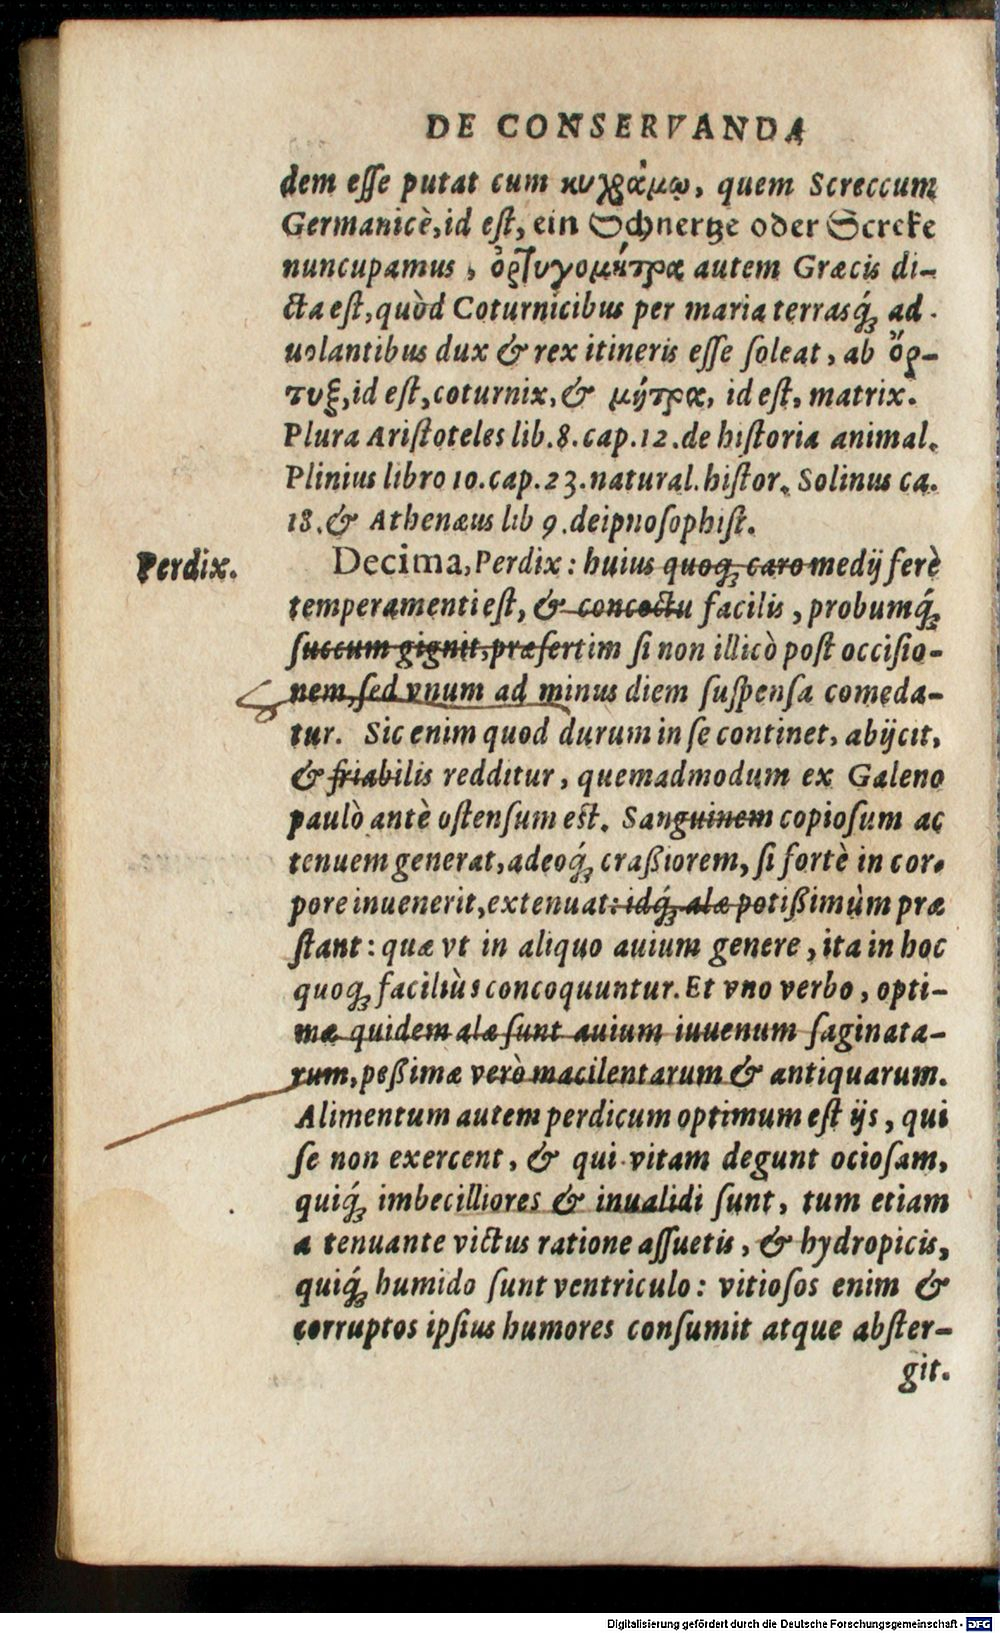 DE CONSERVANDA
dem eſſe putat cum κυχράμῳ, quem Screccum
Germanicè, id eſt, ein Schnertze oder Screke
nuncupamus, ὀρτυγομήτρα autem Græcis di-
cta eſt, quòd Coturnicibus per maria terrasq́; ad
uolantibus dux & rex itineris eſſe ſoleat, ab ὄρ-
τυξ, id eſt, coturnix, & μήτρα, id eſt, matrix.
Plura Ariſtoteles lib. 8. cap. 12. de hiſtoria animal.
Plinius libro 10. cap. 23. natural. hiſtor. Solinus ca.
18. & Athenæus lib 9. deipnoſophiſt.
Perdix.
Decima, Perdix: huius quoq; caro medij ferè
temperamenti eſt, & concoctu facilis, probumq́;
ſuccum gignit, præſertim ſi non illicò poſt occiſio-
nem, ſed vnum ad minus diem ſuſpenſa comeda-
tur. Sic enim quod durum in ſe continet, abijcit,
& friabilis redditur, quemadmodum ex Galeno
paulò antè oſtenſum eſt. Sanguinem copioſum ac
tenuem generat, adeoq́; craßiorem, ſi fortè in cor-
pore inuenerit, extenuat: idq́; alæ potißimùm præ
ſtant: quæ vt in aliquo auium genere, ita in hoc
quoq; faciliùs concoquuntur. Et vno verbo, opti-
mæ quidem alæ ſunt auium iuuenum ſaginata-
rum, peßimæ verò macilentarum & antiquarum.
Alimentum autem perdicum optimum eſt ijs, qui
ſe non exercent, & qui vitam degunt ocioſam,
quiq́; imbecilliores & inualidi ſunt, tum etiam
a tenuante victus ratione aſſuetis, & hydropicis,
quiq́; humido ſunt ventriculo: vitioſos enim &
corruptos ipſius humores conſumit atque abſter-
git.
Digitalisierung gefördert durch die Deutsche Forschungsgemeinschaft - DFG